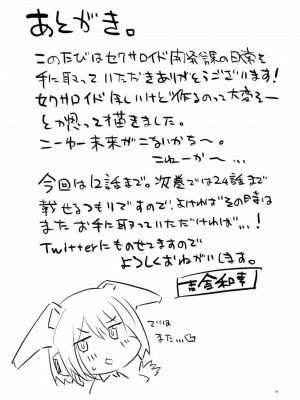 あとがき。
このたびはセクサロイド開発課の日常を
手に取っていただきありがとうございます!
セクサロイドほしいけど作るのって大変そー
とか思って描きました。
こーゆー未来がこないかち〜。
こねーか〜…
今回は12話まで。次巻では24話まで
載せるつもりですので、よければその時は
またお手に取っていただければ…!
Twitterにものせてますので
よろしくおねがいします。
では
また…